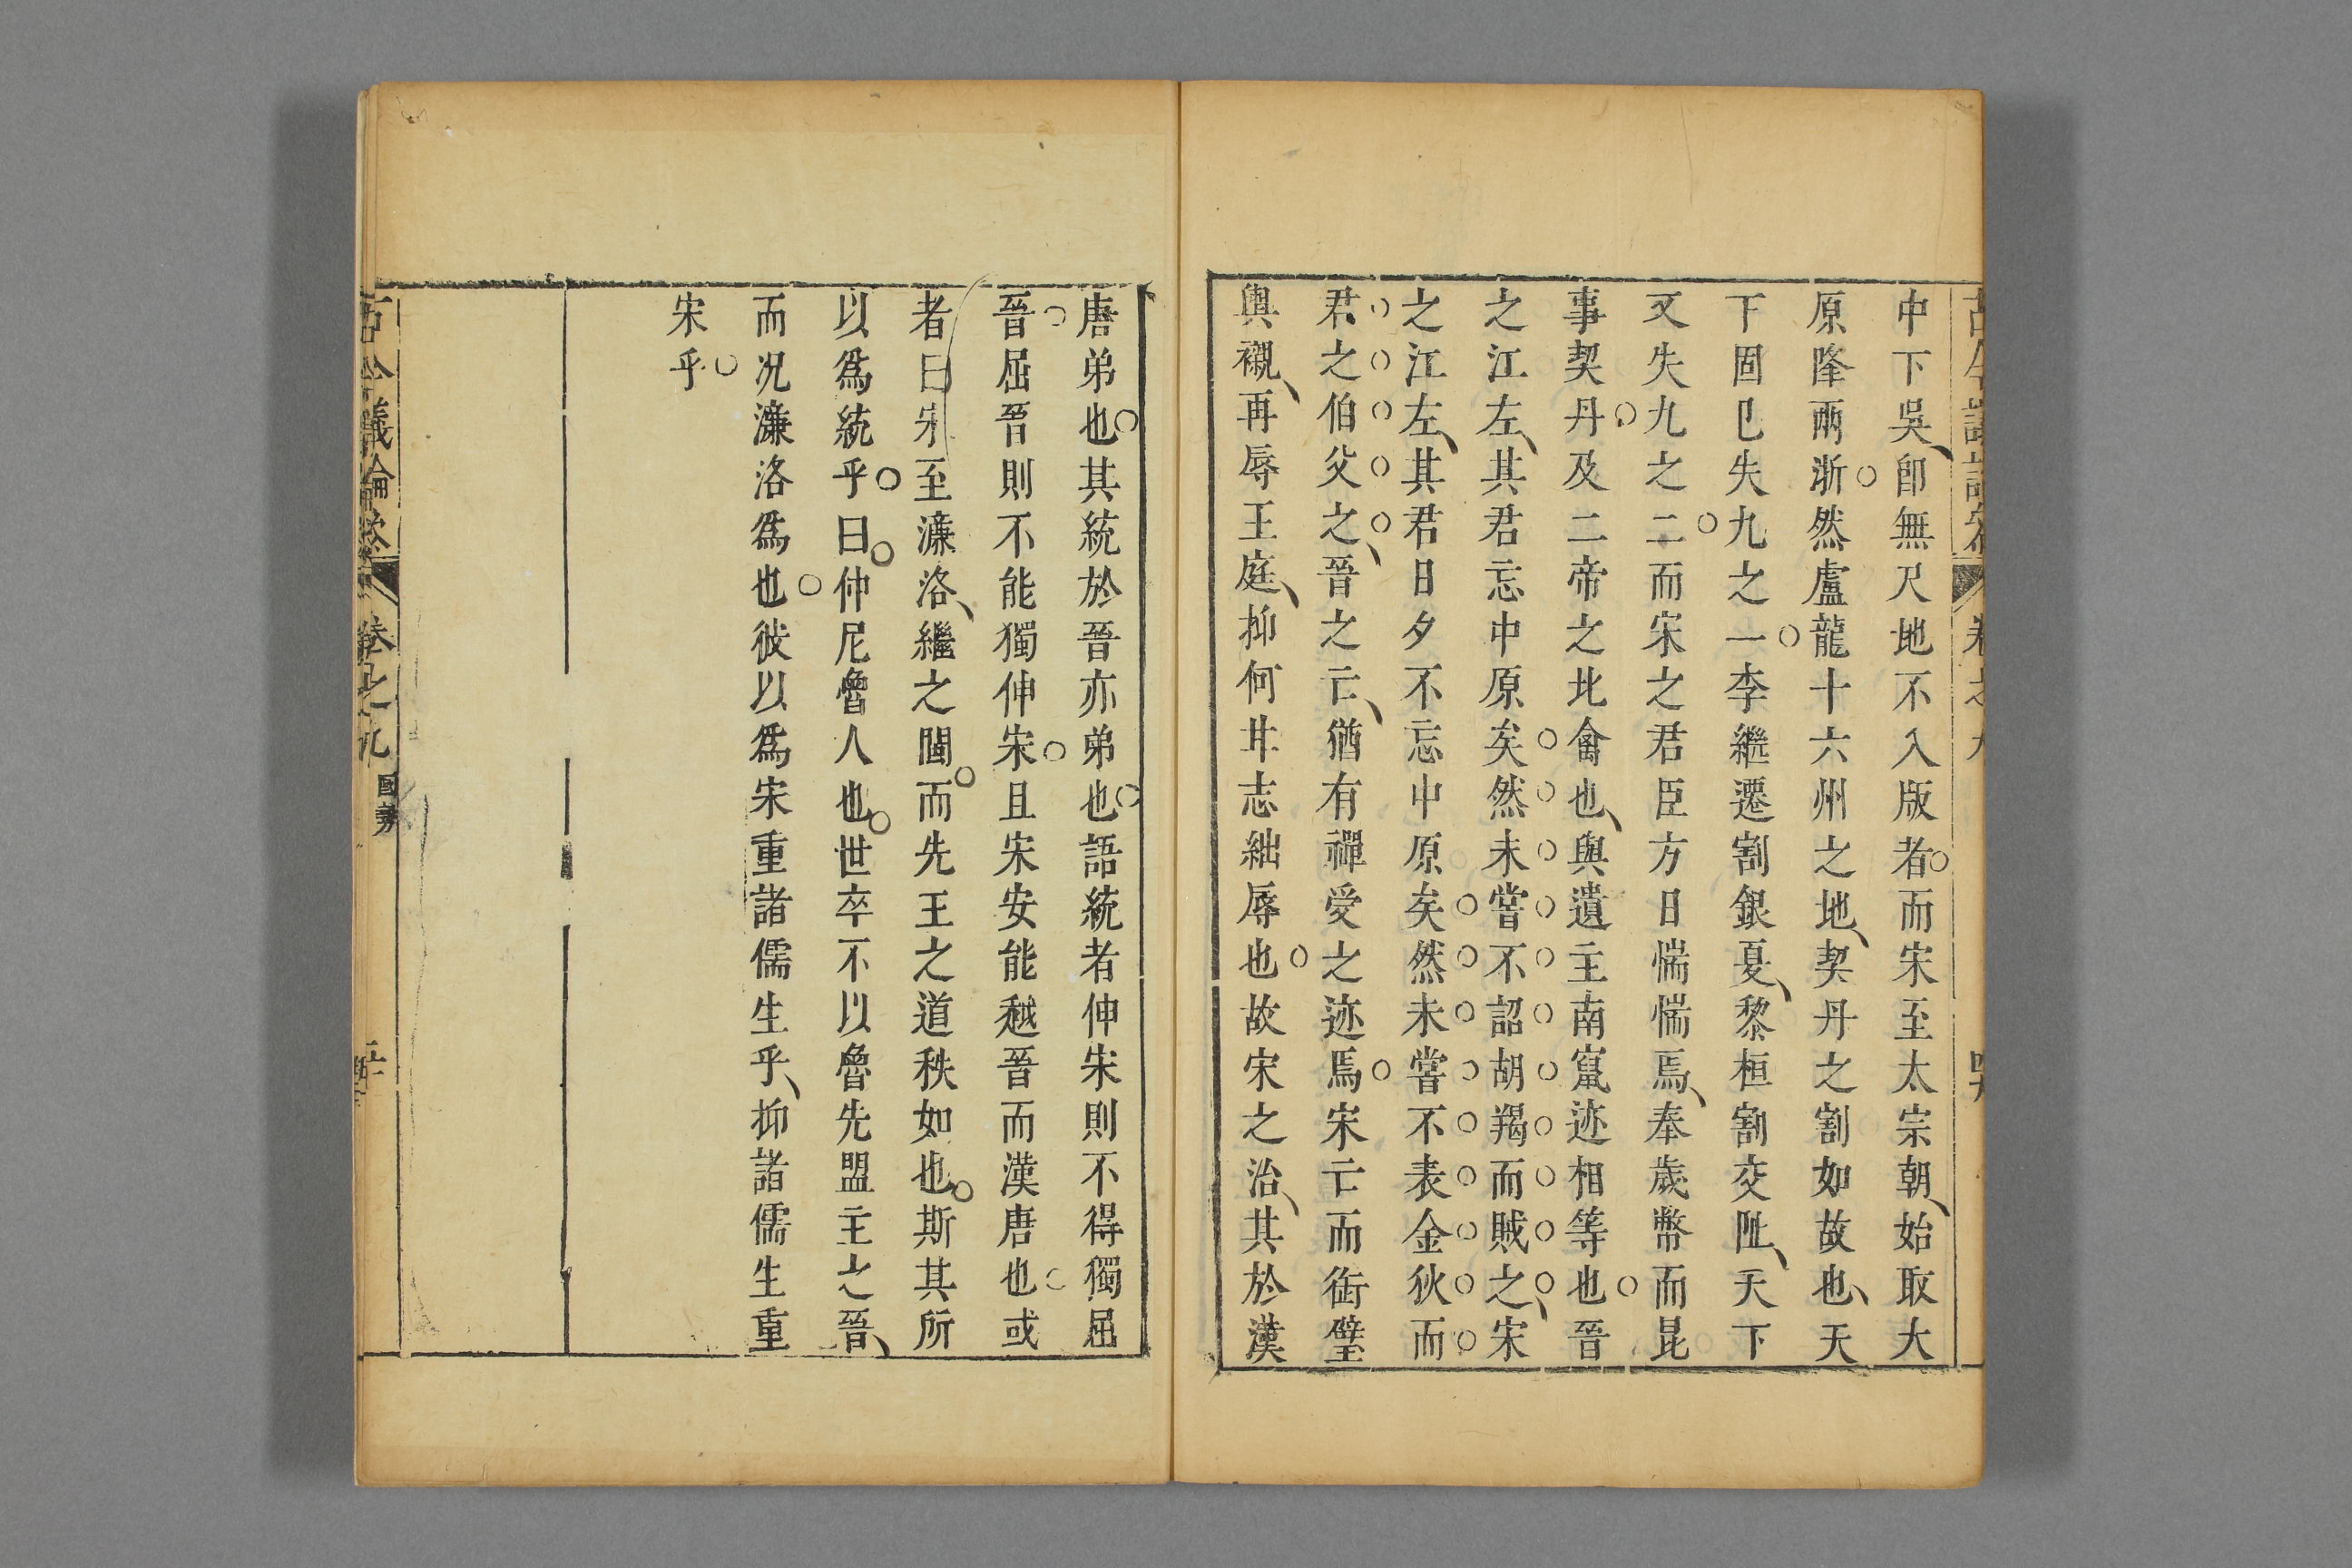 中下吳卽無尺地不入版者而宋至太宗朝始取大
原降兩浙然盧龍十六州之地契丹之割如故也天
下固已失九之一李繼遷割銀夏黎桓割交阯天下
又失九之二而宋之君臣方日惴惴焉奉歲幣而昆
事契丹及二帝之北禽也與遺主南竄迹相等也晉
之江左其君忘中原矣然未嘗不詔胡羯而賊之宋
之江左其君日夕不忘中原矣然未嘗不表金狄而
君之伯父之晉之亡猶有禪受之迹焉宋亡而銜璧
輿櫬再辱王庭抑何其志絀辱也故宋之治其於漢
唐弟也其統於晉亦弟也語統者伸宋則不得獨屈
晉屈晉則不能獨伸宋且宋安能越晉而漢唐也或
者曰宋至濂洛繼之閩而先王之道秩如也斯其所
以爲統乎曰仲尼魯人也世卒不以魯先盟主之晉
而况濂洛爲也彼以爲宋重諸儒生乎抑諸儒生重
宋乎
古今議論參 卷之九 國勢